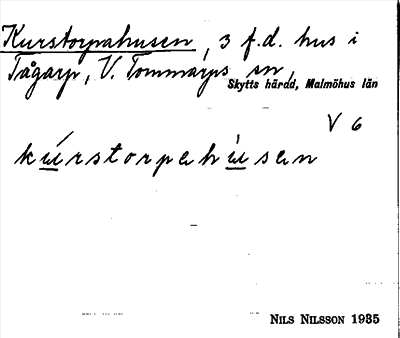 Kurstorpahusen, 3 f.d. hus i
Tågarp, V. Tommarps sn,
Skytts härad, Malmöhus län
V 6
kúrstorpahùsen
NILS NILSSON 1935